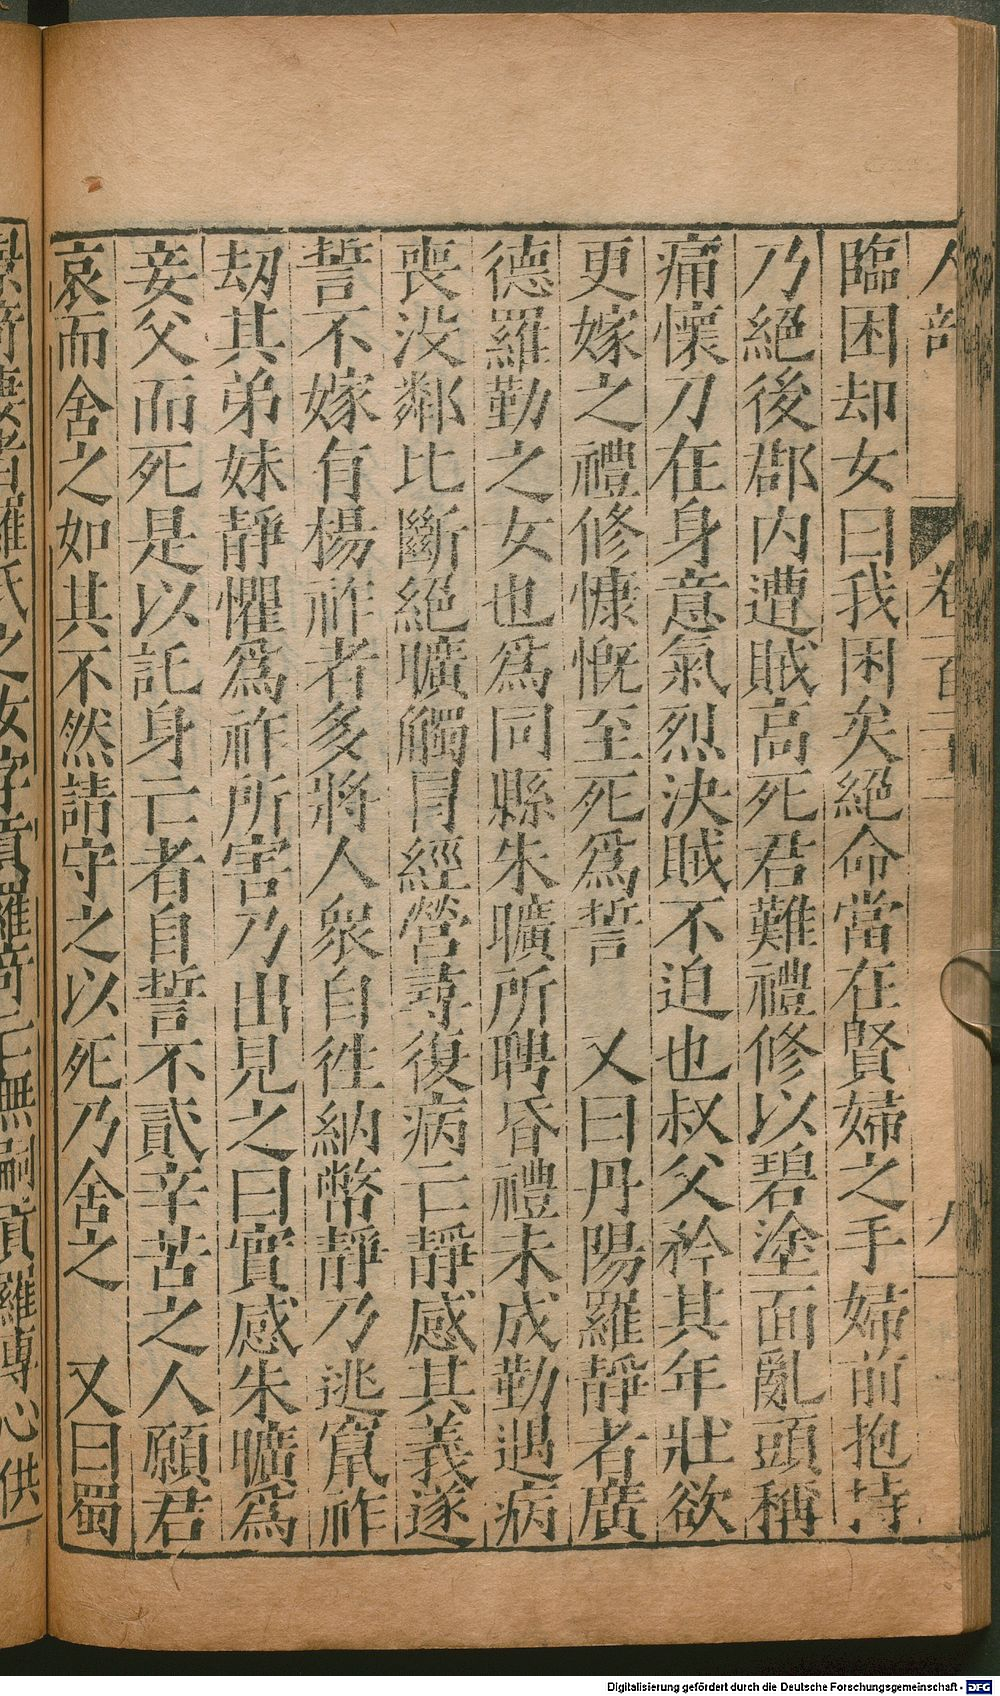 人部
卷一百
八
臨困却女曰我困矣絕命當在賢婦之手婦前抱持
乃絕後郡内遭賊高死君難禮修以碧塗面亂頭稱
痛懷刀在身意氣烈決賊不迫也叔父矜其年壯欲
更嫁之禮修慷慨至死爲誓　又曰丹陽羅靜者廣
德羅勤之女也爲同縣朱曠所聘昏禮未成勤遇病
喪没鄰比斷絕曠觸冒經營尋復病亡靜感其義遂
誓不嫁有楊祚者多將人衆自徃納幣靜乃逃竄祚
刼其弟妹靜懼爲祚所害乃出見之曰實感朱曠爲
妾父而死是以託身亡者自誓不貳辛苦之人願君
哀而舍之如其不然請守之以死乃舍之　又曰蜀
景竒妻者羅氏之女字貢羅竒亡無嗣貢羅專心供
Digitalisierung gefördert durch die Deutsche Forschungsgemeinschaft - DFG